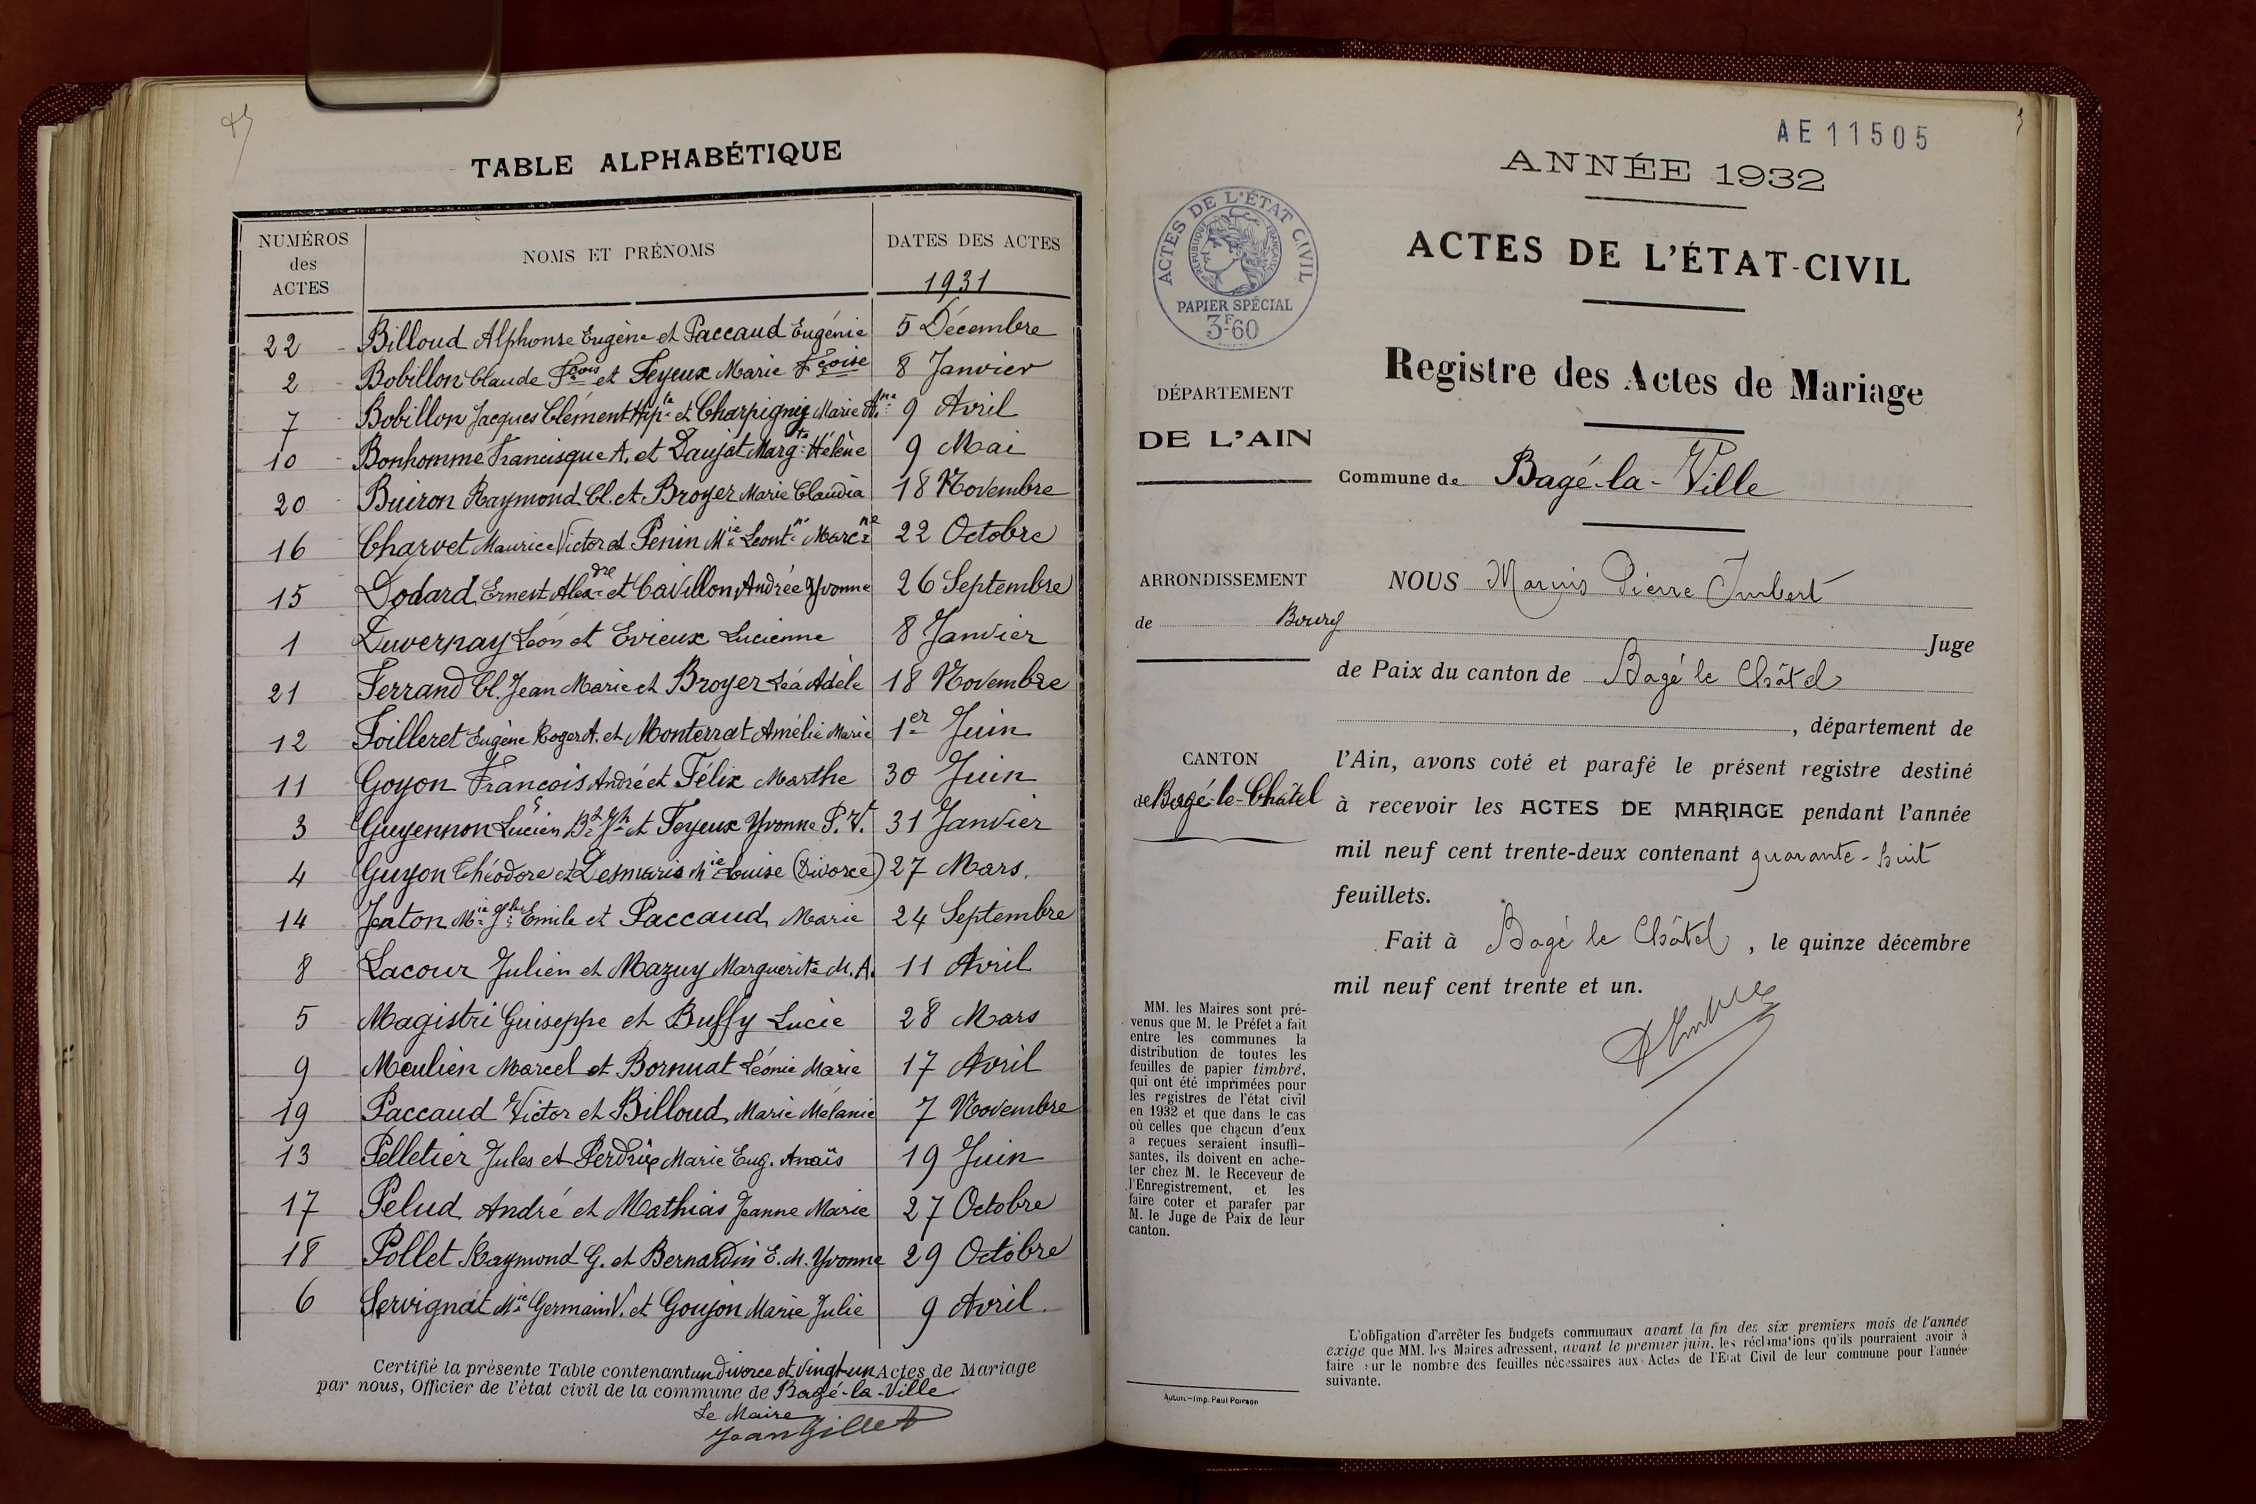 TABLE ALPHABÉTIQUE
NUMÉROS des ACTES
NOMS ET PRÉNOMS
DATES DES ACTES
1931
22 Billoud Alphonse Eugène et Paccaud Eugénie 5 Décembre
2 Bobillon Claude Fçois et Feyeux Marie Fçoise 8 Janvier
7 Bobillon Jacques Clément Hip.te et Charpigny Marie A.ne 9 Avril
10 Bonhomme Francisque A. et Daujat Marg.te Hélène 9 Mai
20 Buiron Raymond Cl. et Broyer Marie Claudia 18 Novembre
16 Charvet Maurice Victor et Penin Mie Leont.ne Marc.ne 22 Octobre
15 Dodard Ernest Alexdre et Cavillon Andrée Yvonne 26 Septembre
1 Duvernay Léon et Evieux Lucienne 8 Janvier
21 Ferrand Cl. Jean Marie et Broyer Léa Adèle 18 Novembre
12 Foilleret Eugène Roger A. et Monterrat Amélie Marie 1er Juin
11 Goyon François André et Félix Marthe 30 Juin
3 Guyennon Lucien Bt Jh et Feyeux Yvonne P. V. 31 Janvier
4 Guyon Théodore et Desmaris Mie Louise (Divorce) 27 Mars.
14 Jeaton Mie Jh Emile et Paccaud Marie 24 Septembre
8 Lacour Julien et Mazuy Marguerite M. A. 11 Avril
5 Magistri Guiseppe et Buffy Lucie 28 Mars
9 Meulien Marcel et Bornuat Léonie Marie 17 Avril
19 Paccaud Victor et Billoud Marie Mélanie 7 Novembre
13 Pelletier Jules et Perdrix Marie Eug. Anaïs 19 Juin
17 Pelud André et Mathias Jeanne Marie 27 Octobre
18 Pollet Raymond G. et Bernardin E. M. Yvonne 29 Octobre
6 Servignat Mie Germain V. et Goujon Marie Julie 9 Avril.
Certifié la présente Table contenant un divorce et vingt-un Actes de Mariage
par nous, Officier de l'état civil de la commune de Bagé-la-Ville
Le Maire
Jean Gillet
AE 11505
ANNÉE 1932
ACTES DE L'ÉTAT CIVIL
RÉPUBLIQUE FRANÇAISE
PAPIER SPÉCIAL
3F60
ACTES DE L'ÉTAT-CIVIL
Registre des Actes de Mariage
DÉPARTEMENT
DE L'AIN
Commune de Bagé-la-Ville
ARRONDISSEMENT
de Bourg
CANTON
de Bagé-le-Châtel
NOUS Marius Pierre Imbert
Juge
de Paix du canton de Bagé le Châtel
, département de
l'Ain, avons coté et parafé le présent registre destiné
à recevoir les ACTES DE MARIAGE pendant l'année
mil neuf cent trente-deux contenant quarante-huit
feuillets.
Fait à Bagé le Châtel, le quinze décembre
mil neuf cent trente et un.
MM. les Maires sont pré-
venus que M. le Préfet a fait
entre les communes la
distribution de toutes les
feuilles de papier timbré,
qui ont été imprimées pour
les registres de l'état civil
en 1932 et que dans le cas
où celles que chacun d'eux
a reçues seraient insuffi-
santes, ils doivent en ache-
ter chez M. le Receveur de
l'Enregistrement, et les
faire coter et parafer par
M. le Juge de Paix de leur
canton.
L'obligation d'arrêter les budgets communaux avant la fin des six premiers mois de l'année
exige que MM. les Maires adressent, avant le premier juin, les réclamations qu'ils pourraient avoir à
faire sur le nombre des feuilles nécessaires aux Actes de l'Etat Civil de leur commune pour l'année
suivante.
Autun.-Imp. Paul Poirson